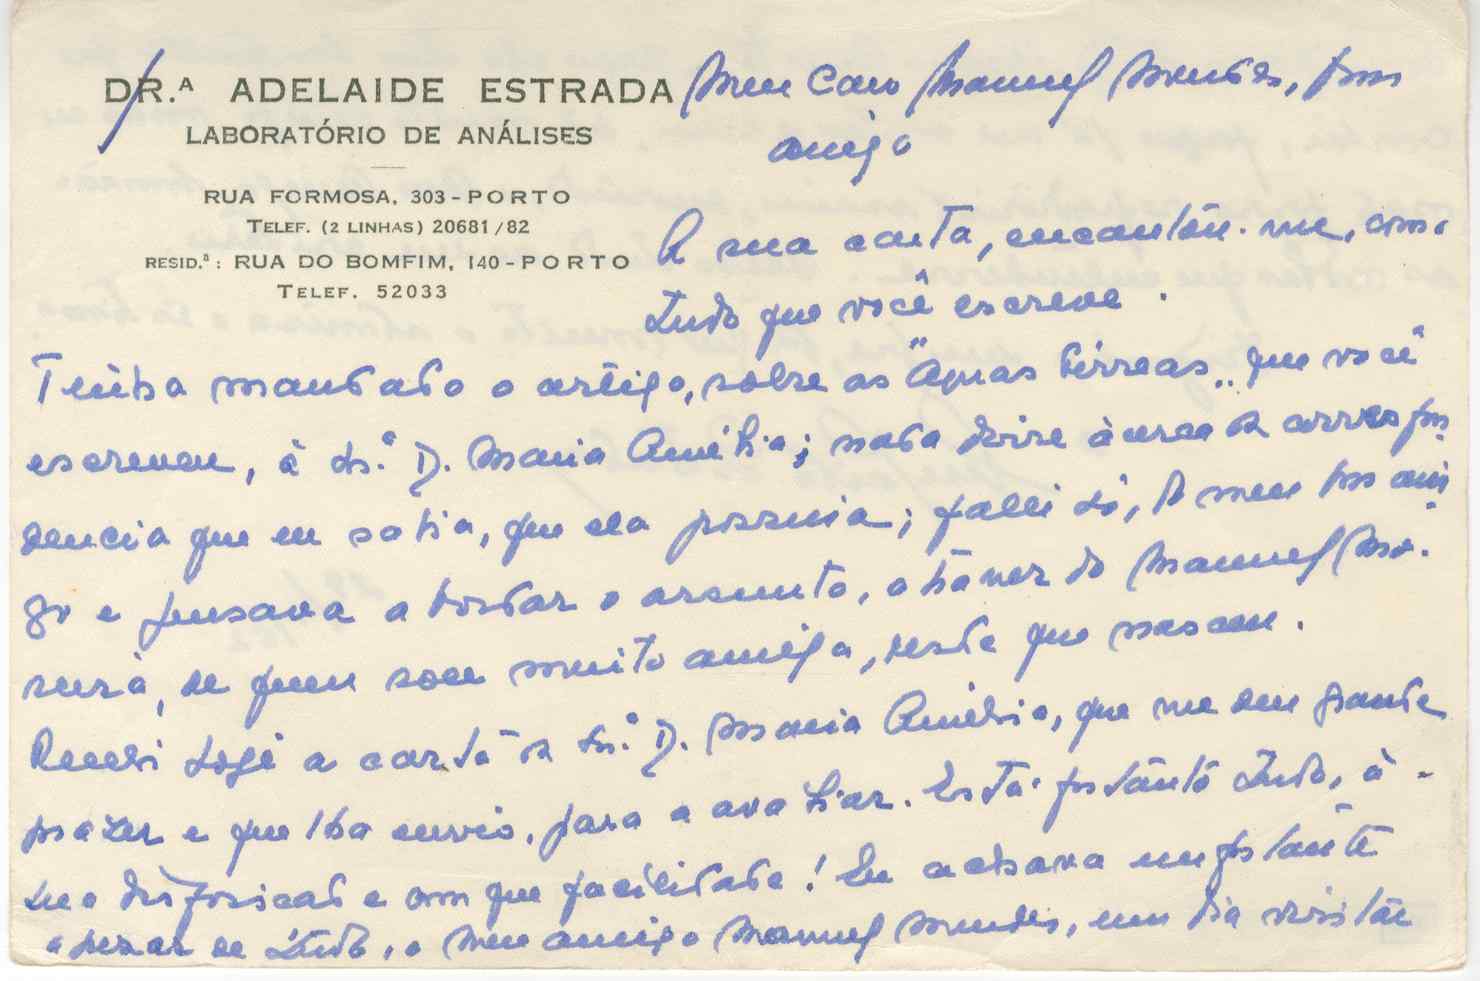 DR.ª ADELAIDE ESTRADA
LABORATÓRIO DE ANÁLISES
RUA FORMOSA, 303 - PORTO
TELEF. (2 LINHAS) 20681/82
RESID.ª: RUA DO BOMFIM, 140 - PORTO
TELEF. 52033
Meu Caro Manuel Mendes, bom
amigo
A sua carta, encantou-me, como
tudo que você escreve.
Tinha mandado o artigo, sobre as "Águas Férreas" que você
escreveu, à Sr.ª D. Maria Amélia; nada disse àcerca da correspon
dencia que eu sabia, que ela possuia; falei só, do meu bom ami
go e pensava abordar o assunto, através do Manuel Mo-
reira, de quem sou muito amiga, desde que nasceu.
Recebi hoje a carta da Sr.ª D. Maria Amélia, que me deu grande
prazer e que lha envio, para a avaliar. Está portanto tudo, à
sua disposição e com que facilidade! Eu achava importante
apezar de tudo, o meu amigo Manuel Mendes, um dia visitar